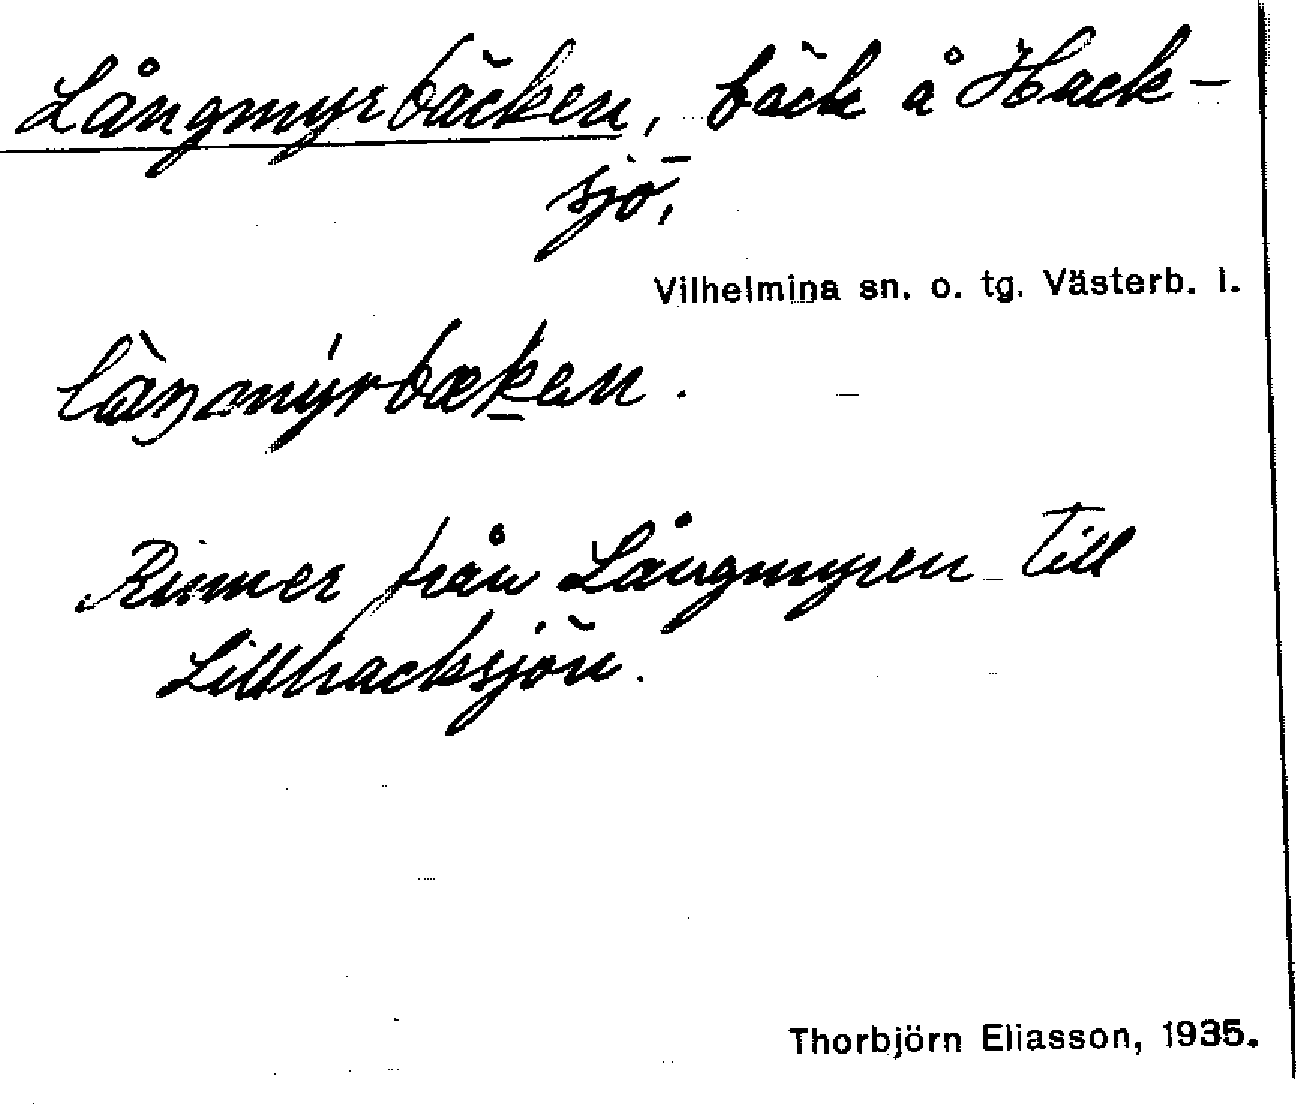 Långmyrbäcken, bäck å Hack-
sjö,
Vilhelmina sn. o. tg. Västerb. l.
làŋmýrbækən.
Rinner från Långmyren till
Lillhacksjön.
Thorbjörn Eliasson, 1935.